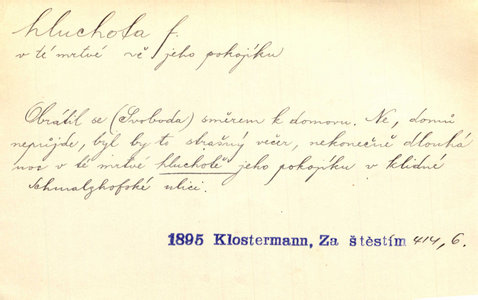 hluchota f.
v té mrtvé -tě jeho pokojíku
Obrátil se (Svoboda) směrem k domovu. Ne, domů
nepůjde, byl by to strašný večer, nekonečně dlouhá
noc v té mrtvé hluchotě jeho pokojíku v klidné
Schmalzhofské ulici.
1895 Klostermann, Za štěstím 414, 6.